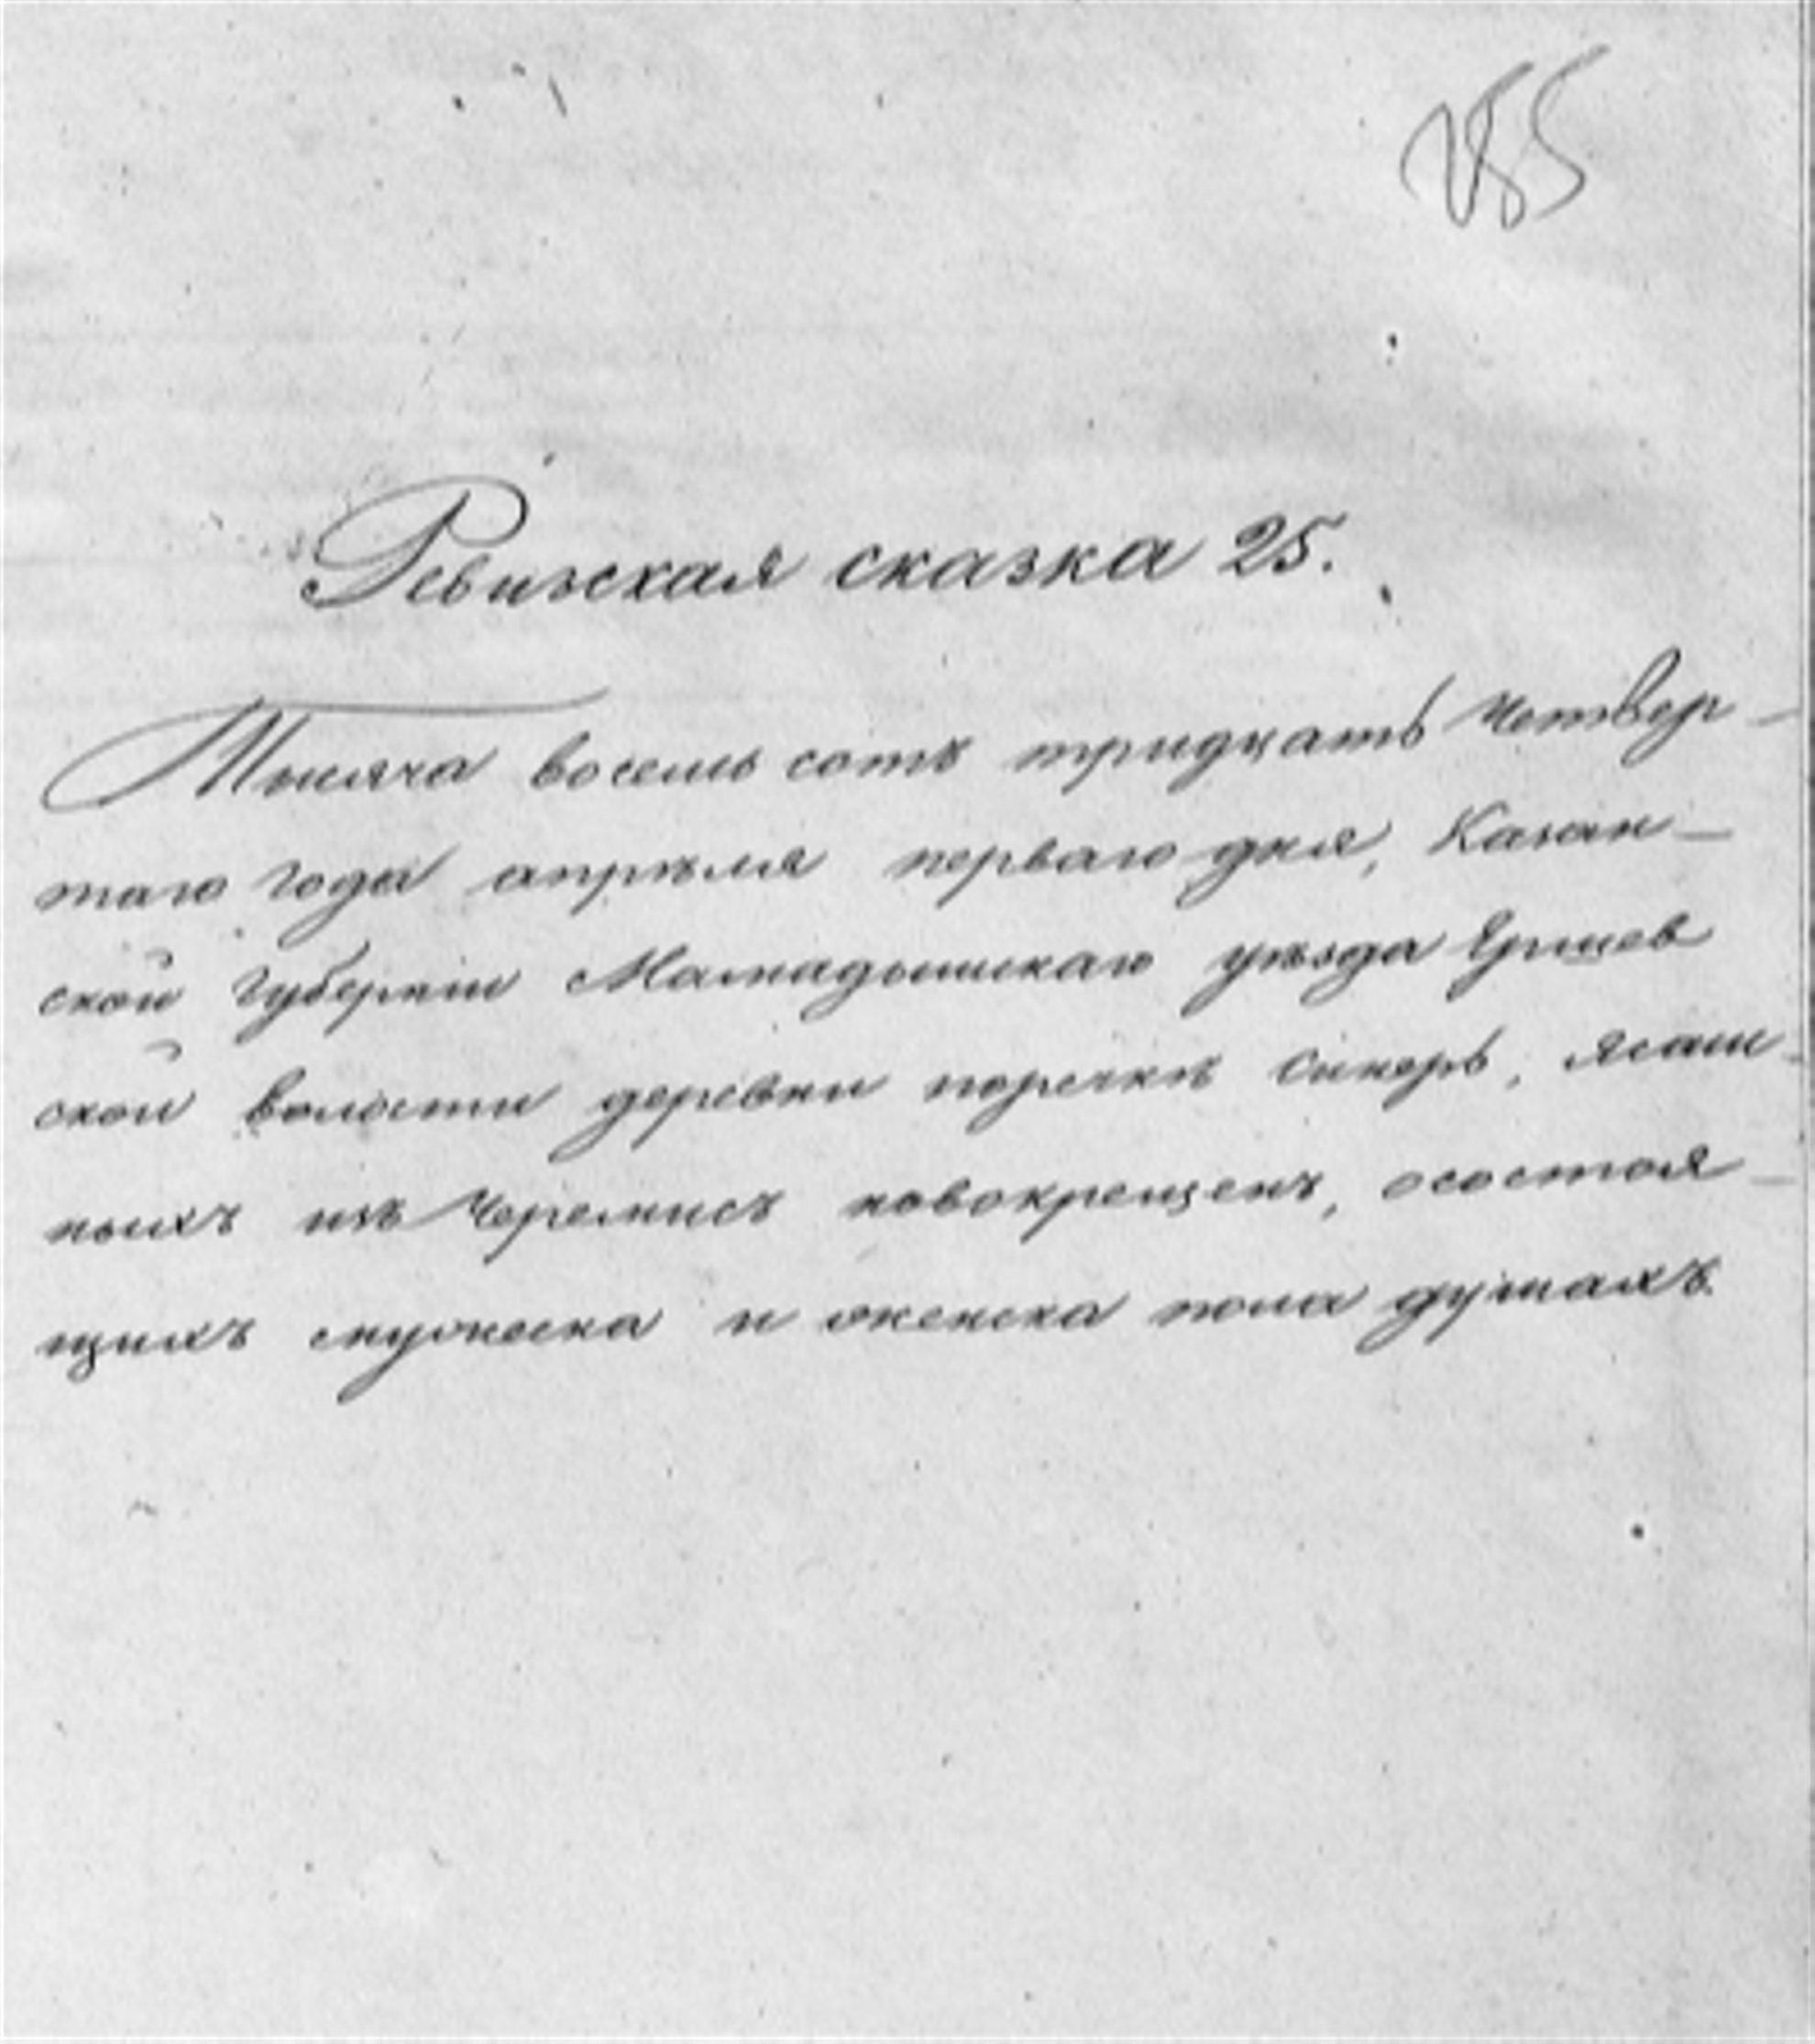 255
Ревизская сказка 25.
Тысяча восемь сотъ тридцать четвер-
таго года апрѣля перваго дня, Казан-
ской губернiи Мамадышскаго уѣзда
ской волости деревни поречкѣ ясаш-
ныхъ изъ Черемисъ новокрещенъ, осостоя-
щихъ смужеска и женска пола душахъ.